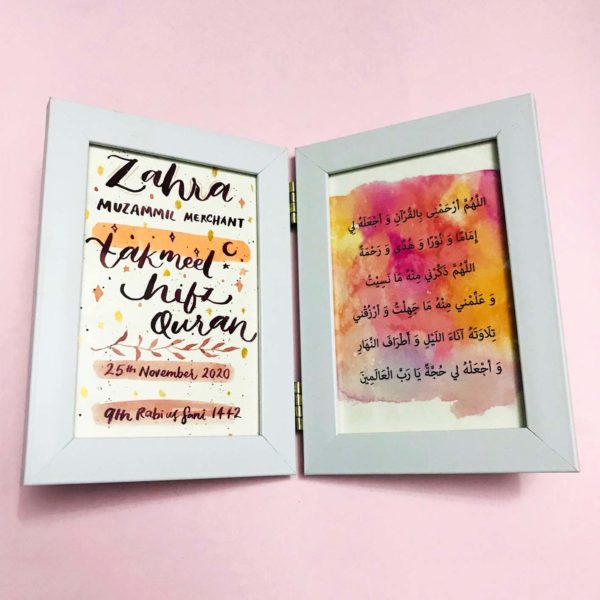 Zahra
MUZAMMIL MERCHANT
takmeel
hifz
Quran
25th November 2020
9th Rabi us Sani 1442
اللَّهُمَّ أرْحَمْنِى بِالْقُرْآنِ وَ أجْعَلْهُ لِي
إِمَامًا وَ نُورًا وَ هُدًى وَ رَحْمَةً
اللَّهُمَّ ذَكِّرْنِي مِنْهُ مَا نَسِيْتُ
وَ عَلِّمْنِي مِنْهُ مَا جَهِلْتُ وَ ارْزُقْنِي
تِلَاوَتَهُ آنَاءَ اللَّيْلِ وَ أَطْرَافَ النَّهَارِ
وَ اجْعَلْهُ لِي حُجَّةً يَا رَبَّ الْعَالَمِينَ